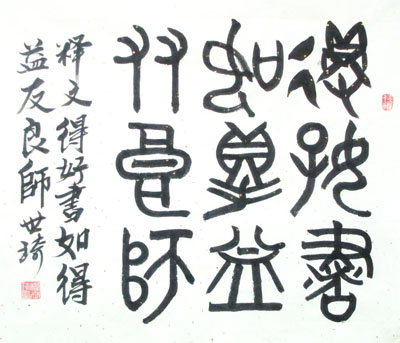 得好書
如得益
友良師
释文得好書如得
益友良師 世琦